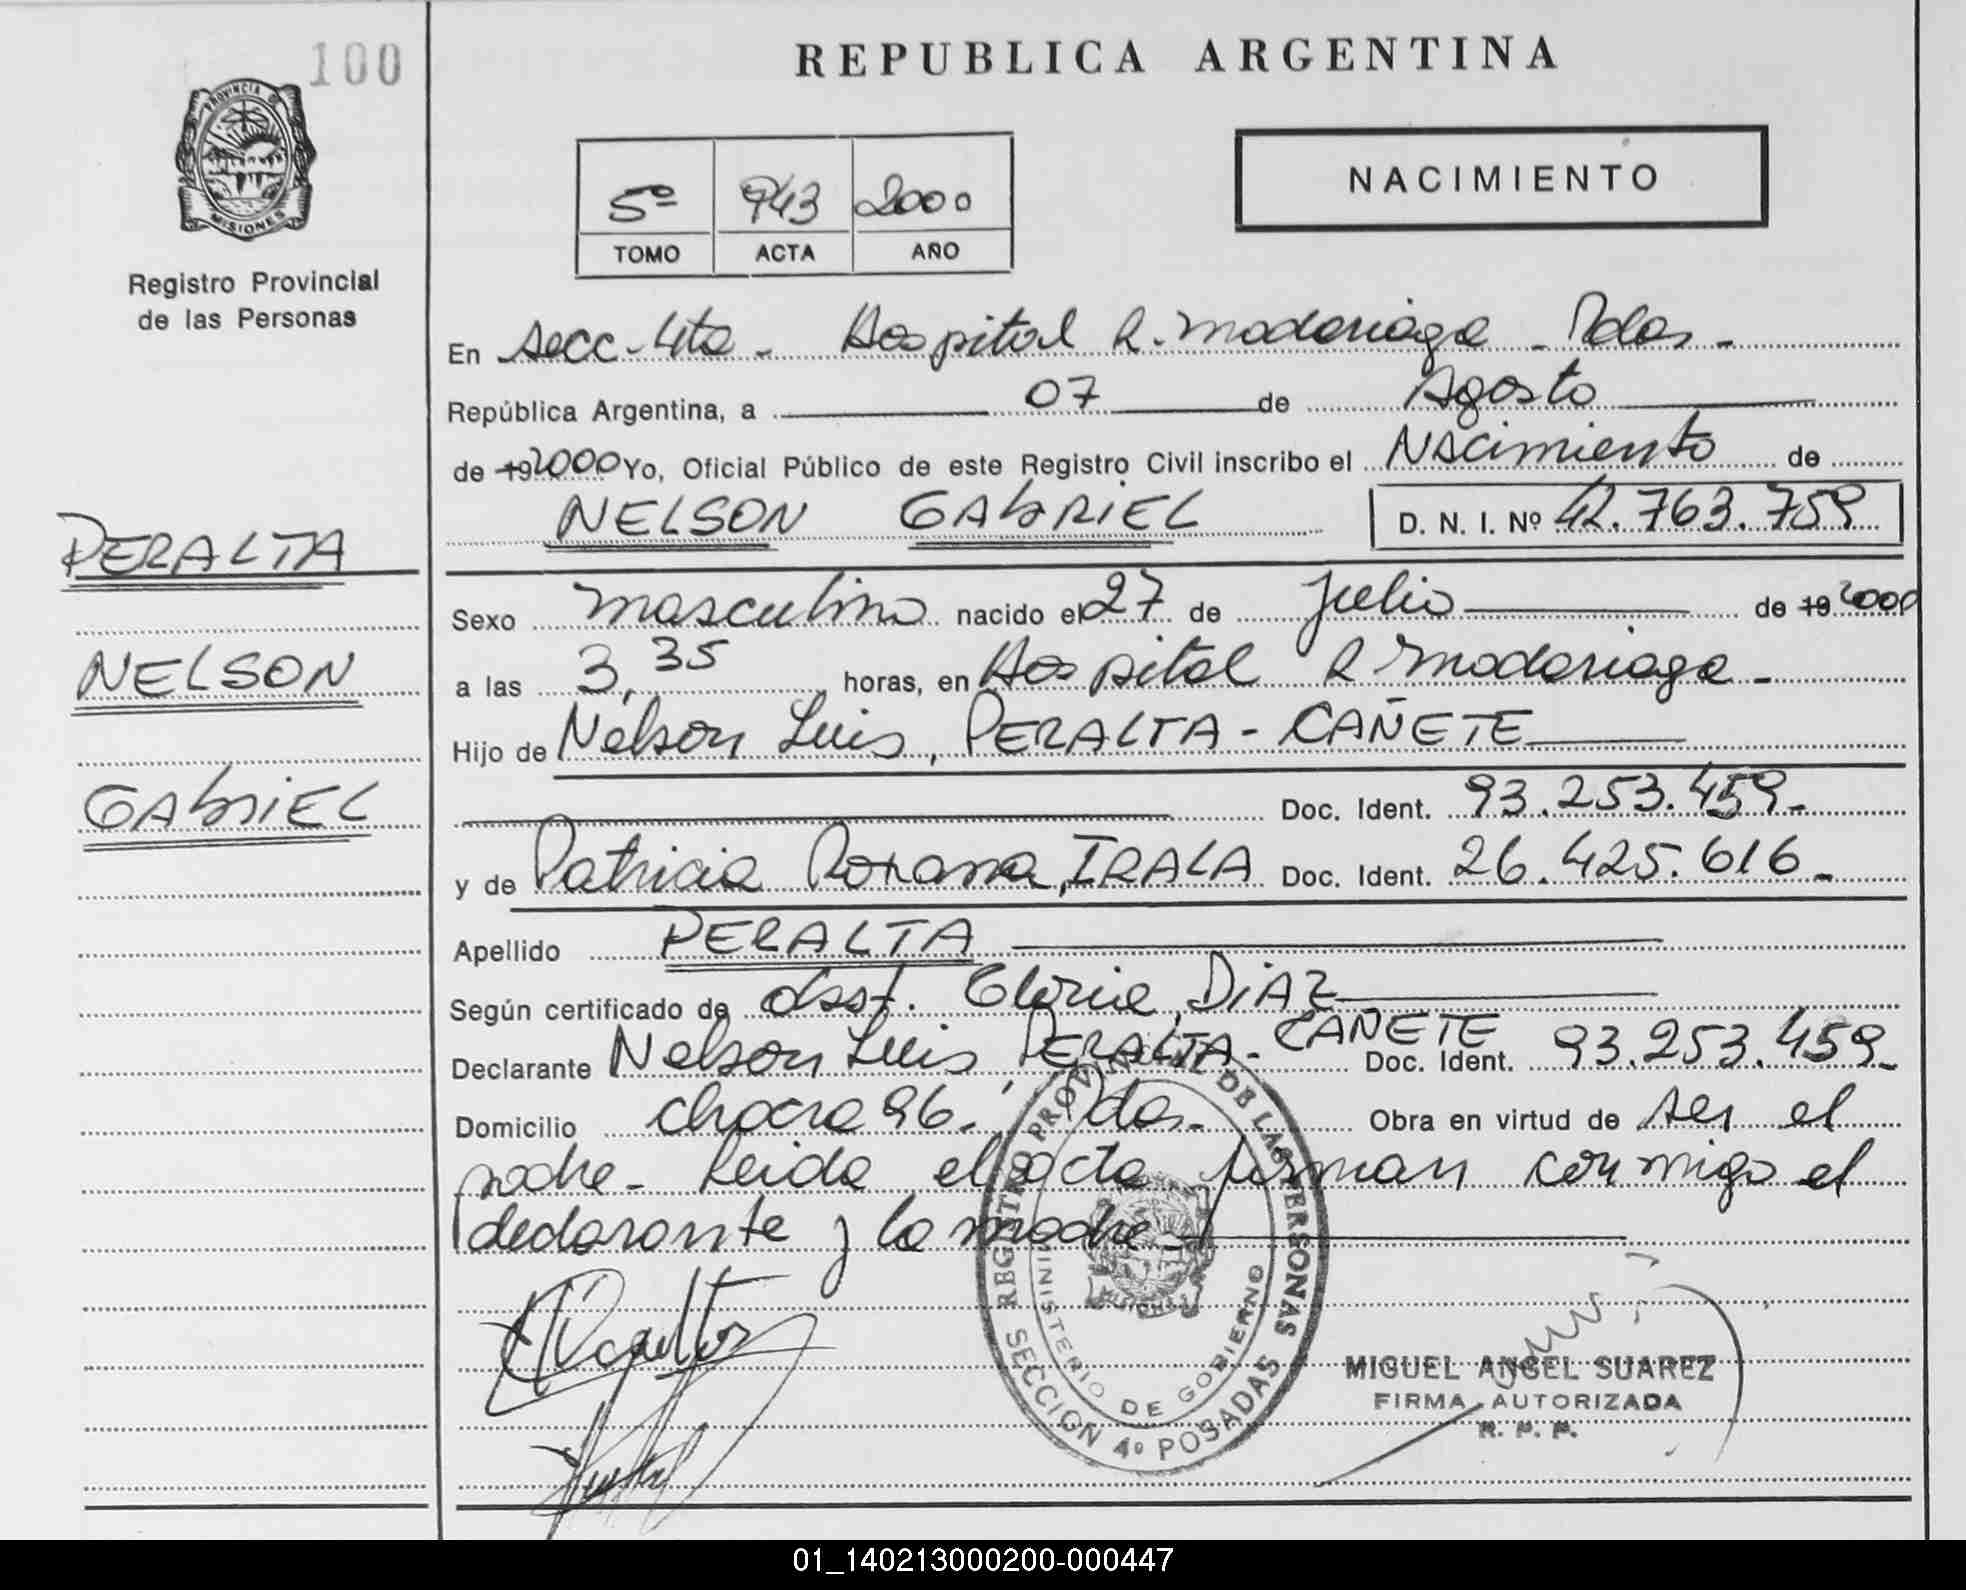 100
REPUBLICA ARGENTINA
PROVINCIA DE
MISIONES
Registro Provincial
de las Personas
5º 943 2000
TOMO ACTA AÑO
NACIMIENTO
En Secc. 4ta - Hospital R. Madariaga - Pdas -
República Argentina, a 07 de Agosto
de 19 2000 Yo, Oficial Público de este Registro Civil inscribo el Nacimiento de
NELSON GABRIEL D. N. I. Nº 42.763.759
PERALTA
NELSON
GABRIEL
Sexo masculino nacido el 27 de Julio de 19 2000
a las 3,35 horas, en Hospital R Madariaga -
Hijo de Nelson Luis, PERALTA - CAÑETE
Doc. Ident. 93.253.459 -
y de Patricia Roxana, IRALA Doc. Ident. 26.425.616 -
Apellido PERALTA
Según certificado de obst. Gloria, DIAZ
Declarante Nelson Luis, PERALTA - CAÑETE Doc. Ident. 93.253.459 -
Domicilio chacra 96. Pdas. Obra en virtud de ser el
padre - Leida el acta firman conmigo el
declarante y la madre -
REGISTRO PROVINCIAL DE LAS PERSONAS
MINISTERIO DE GOBIERNO
SECCION 4º POSADAS
MIGUEL ANGEL SUAREZ
FIRMA AUTORIZADA
R. P. P.
01_140213000200-000447